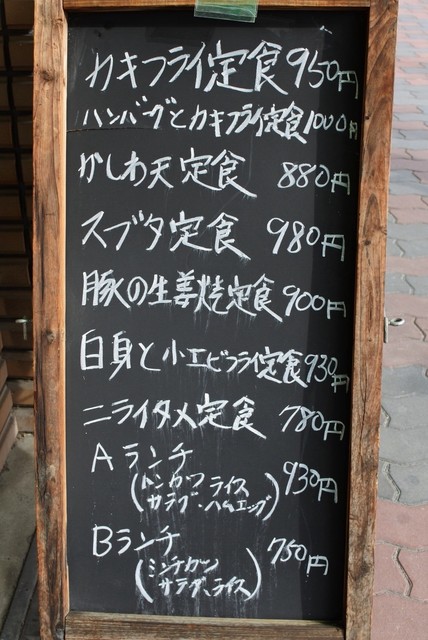 カキフライ定食950円
ハンバーグとカキフライ定食1000円
かしわ天定食 880円
スブタ定食 980円
豚の生姜焼定食900円
白身と小エビフライ定食930円
ニライタメ定食 780円
Aランチ 930円
(トンカツ ライス
サラダ・ハムエッグ)
Bランチ 750円
(ミンチカツ
サラダ、ライス)